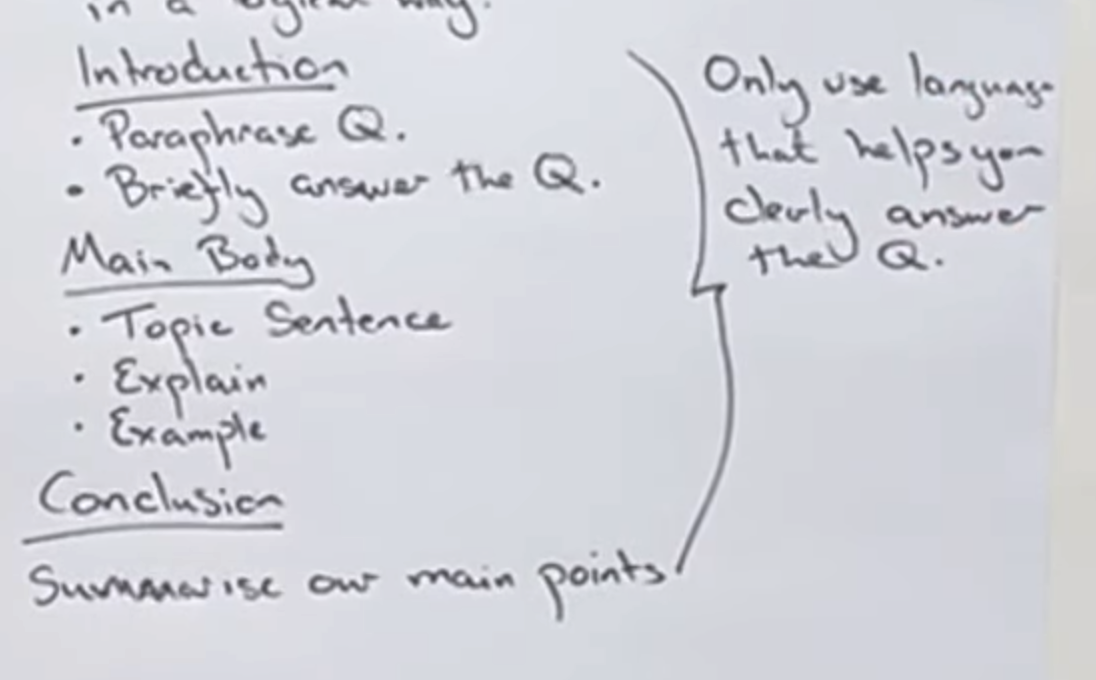 in a logical way.
Introduction
• Paraphrase Q.
• Briefly answer the Q.
Main Body
• Topic Sentence
• Explain
• Example
Conclusion
Summarise our main points
Only use language
that helps you
clearly answer
the Q.